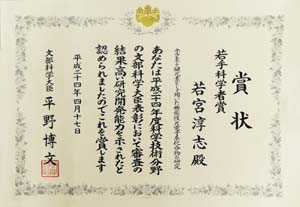 賞状
若手科学者賞
若宮淳志殿
ホウ素を鍵元素として用いた機能性π電子系化合物の研究
あなたは平成二十四年度科学技術分野
の文部科学大臣表彰において審査の
結果高い研究開発能力を示されたと
認められましたのでこれを賞します
平成二十四年四月十七日
文部科学大臣
平野博文